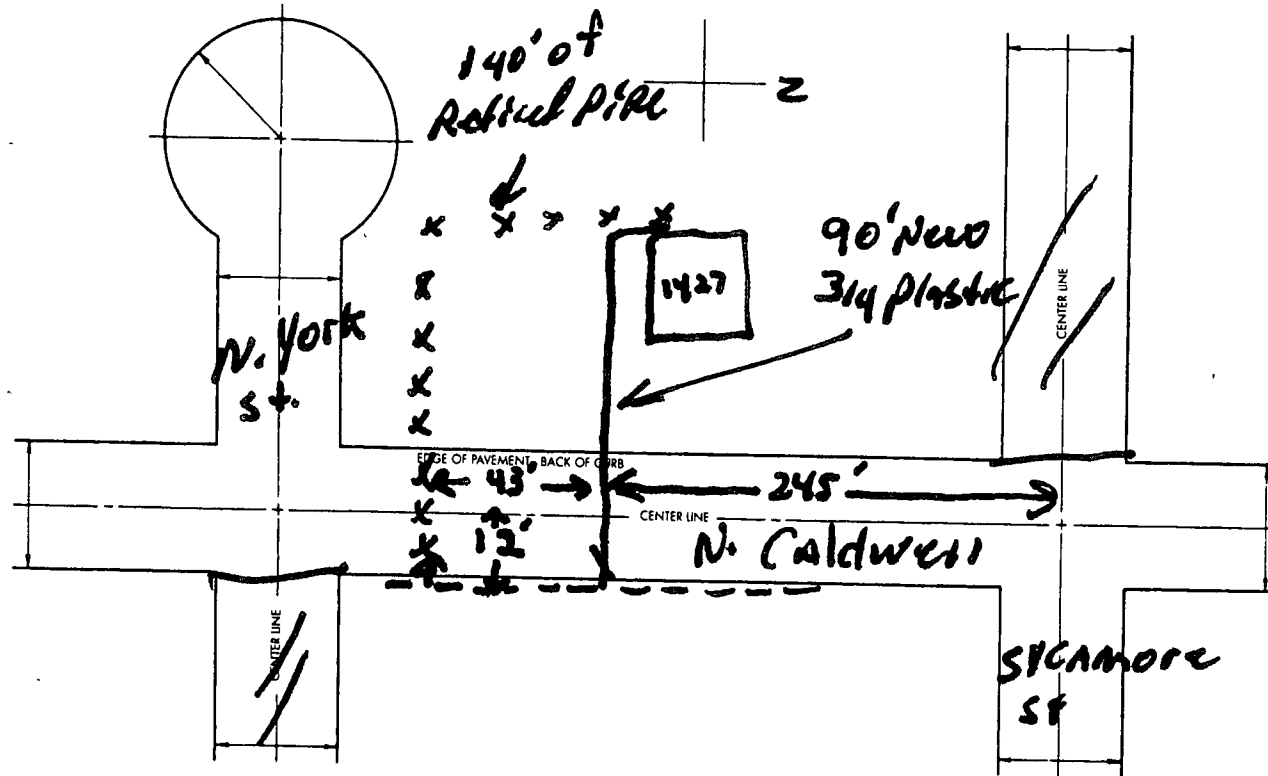 140' of
Retired Pipe
N
1427
90' New
3/4 Plastic
CENTER LINE
N. York
st.
EDGE OF PAVEMENT, BACK OF CURB
43'
245'
CENTER LINE
12'
N. Caldwell
CENTER LINE
Sycamore
St